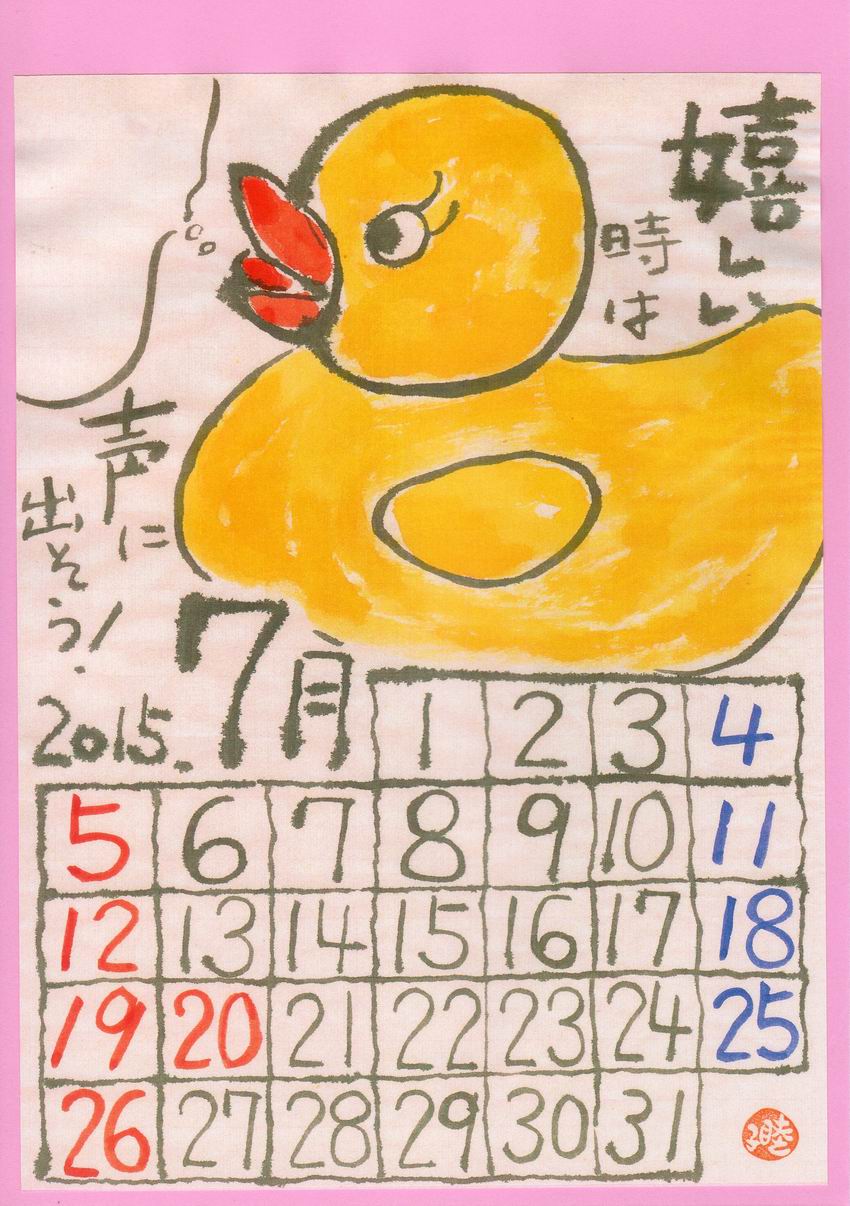 嬉しい
時は
声に
出そう!
2015.
7月
1 2 3 4
5 6 7 8 9 10 11
12 13 14 15 16 17 18
19 20 21 22 23 24 25
26 27 28 29 30 31